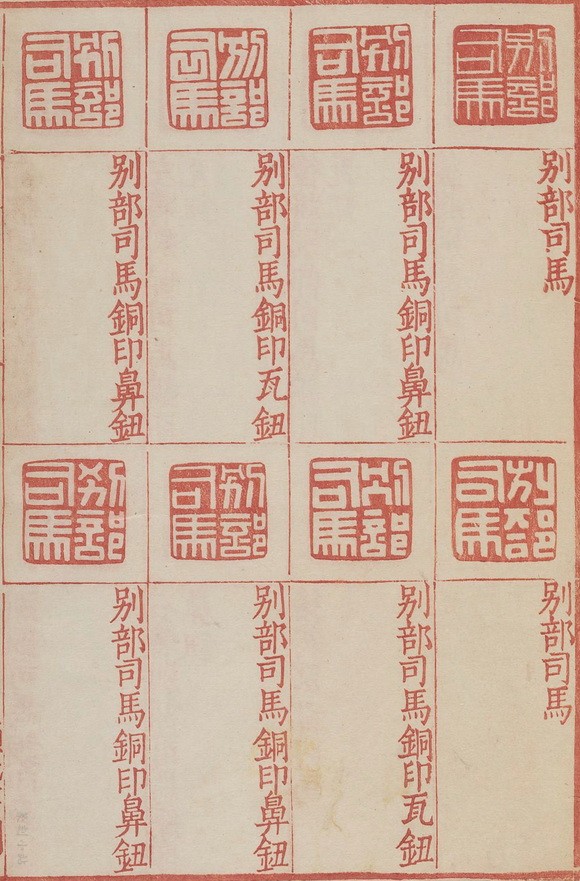 別部司馬
別部司馬
別部司馬
別部司馬銅印鼻鈕
別部司馬
別部司馬銅印瓦鈕
別部司馬
別部司馬銅印鼻鈕
別部司馬
別部司馬
別部司馬
別部司馬銅印瓦鈕
別部司馬
別部司馬銅印鼻鈕
別部司馬
別部司馬銅印鼻鈕